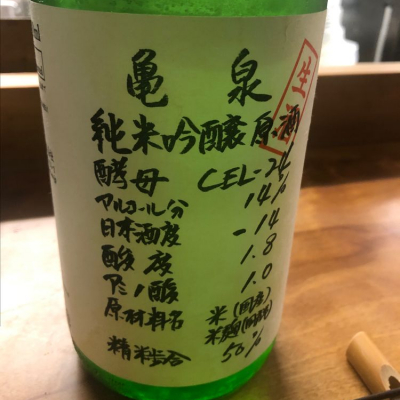 亀泉
純米吟醸原酒
生
酵母 CEL-24
アルコール分 14%
日本酒度 -14
酸度 1.8
アミノ酸 1.0
原材料名 米(国産)
米麹(国産米)
精米歩合 50%